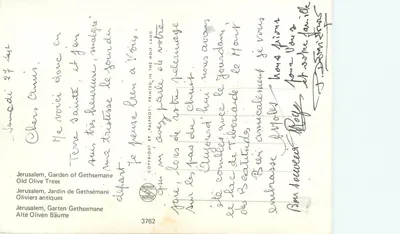 Samedi 27 sept
Chers amis.
Me voici donc en
Terre Sainte et j'en
suis très heureuse, malgré
ma tristesse le jour du
départ.
Je pense bien à Vous,
qui m'avez parlé de votre
joie lors de votre pèlerinage
sur les pas du Christ.
Aujourd'hui nous avons
été comblés avec le Jourdain,
le lac de Tibériade le Mont
des Béatitudes
Bien amicalement je vous
embrasse
nous prions
pour Vous
et votre famille
Bon souvenir
Jerusalem, Garden of Gethsemane
Old Olive Trees
Jerusalem, Jardin de Gethsémani
Oliviers antiques
Jerusalem, Garten Gethsemane
Alte Oliven Bäume
3762
COPYRIGHT BY PALPHOT, PRINTED IN THE HOLY LAND